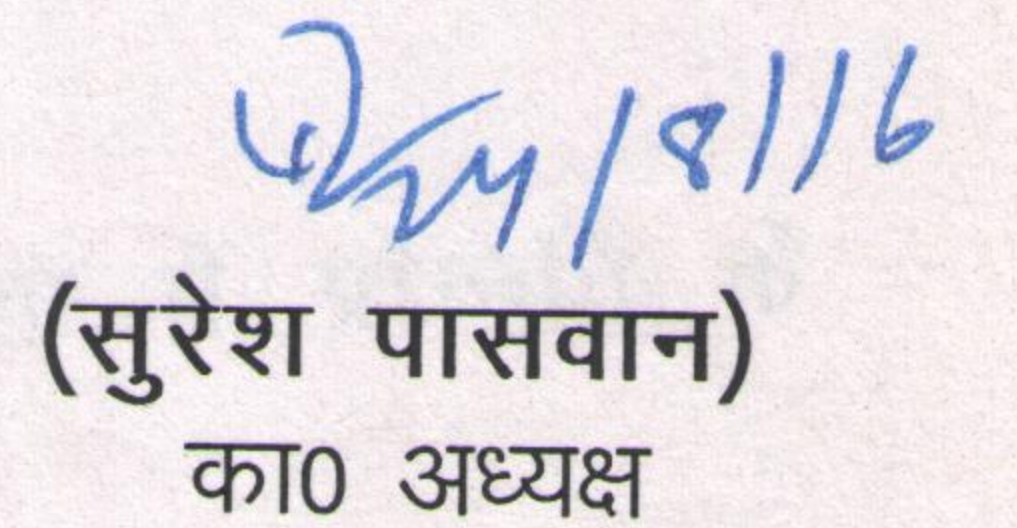 24/8/16
(सुरेश पासवान)
का0 अध्यक्ष